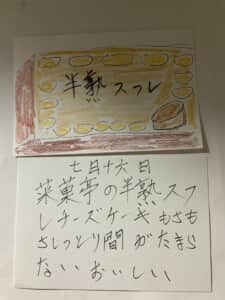 半熟スフレ
七月十六日
菓菓亭の半熟スフ
レチーズケーキもさも
さしっとり間がたまら
ないおいしい